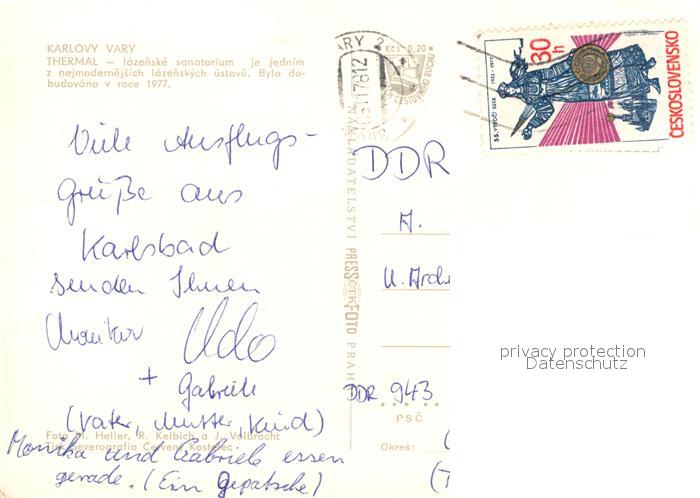 KARLOVY VARY
THERMAL — lázeňské sanatorium je jedním
z nejmodernějších lázeňských ústavů. Bylo do-
budována v roce 1977.
Viele Ausflugs-
grüße aus
Karlsbad
senden Ihnen
Monika Udo
+ Gabriele
(Vater, Mutter, Kind)
Monika und Gabriele essen
gerade. (Ein Gepatsche)
Foto M. Heller, R. Kelbich a J. Vollbracht
Tisk Severografia Červený Kostelec
NAKLADATELSTVÍ PRESSFOTO PRAHA
ČTK
ARY 2
Kčs 0,20
CESTOVNÍHO RUCHU
30h
ČESKOSLOVENSKO
55. VÝROČÍ SSSR 1922-1977
DDR
A.
DDR 943
PSČ
Okres:
privacy protection
Datenschutz